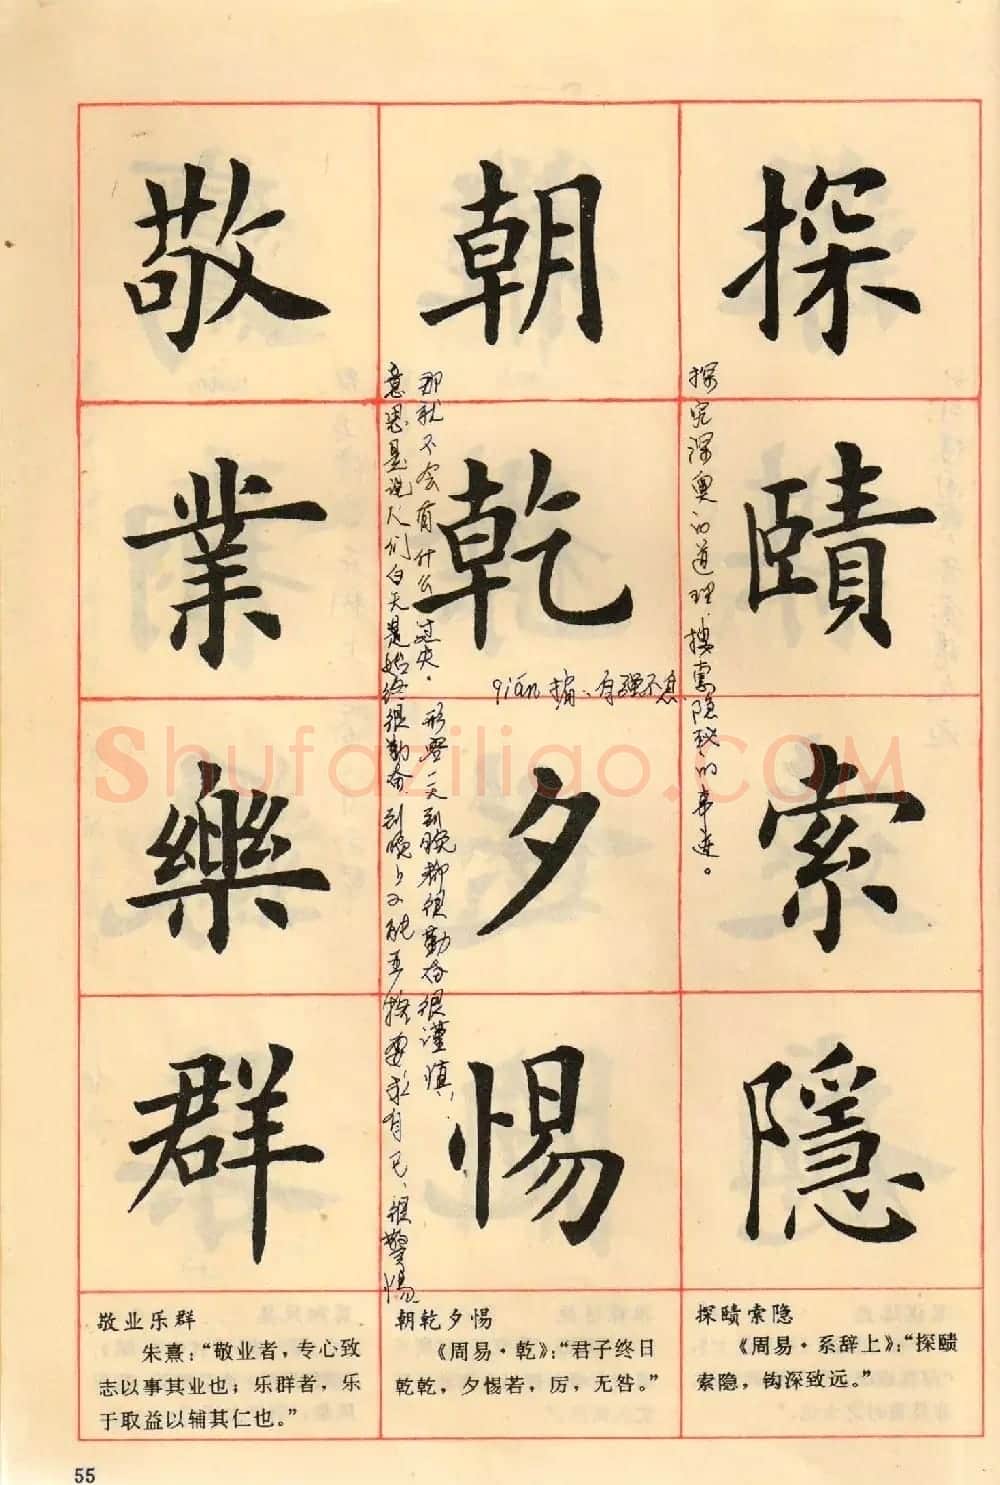 探賾索隱
探究深奥的道理，搜索隐秘的事迹。
朝乾夕惕
qián
自强不息
意思是说人们白天是始终很勤奋到晚上又能严格要求自己、很警惕
那就不会有什么过失。形容一天到晚都很勤奋很谨慎，
敬業樂群
Shufaziliao.COM
敬业乐群
朱熹：“敬业者，专心致
志以事其业也；乐群者，乐
于取益以辅其仁也。”
朝乾夕惕
《周易·乾》：“君子终日
乾乾，夕惕若，厉，无咎。”
探赜索隐
《周易·系辞上》：“探赜
索隐，钩深致远。”
55